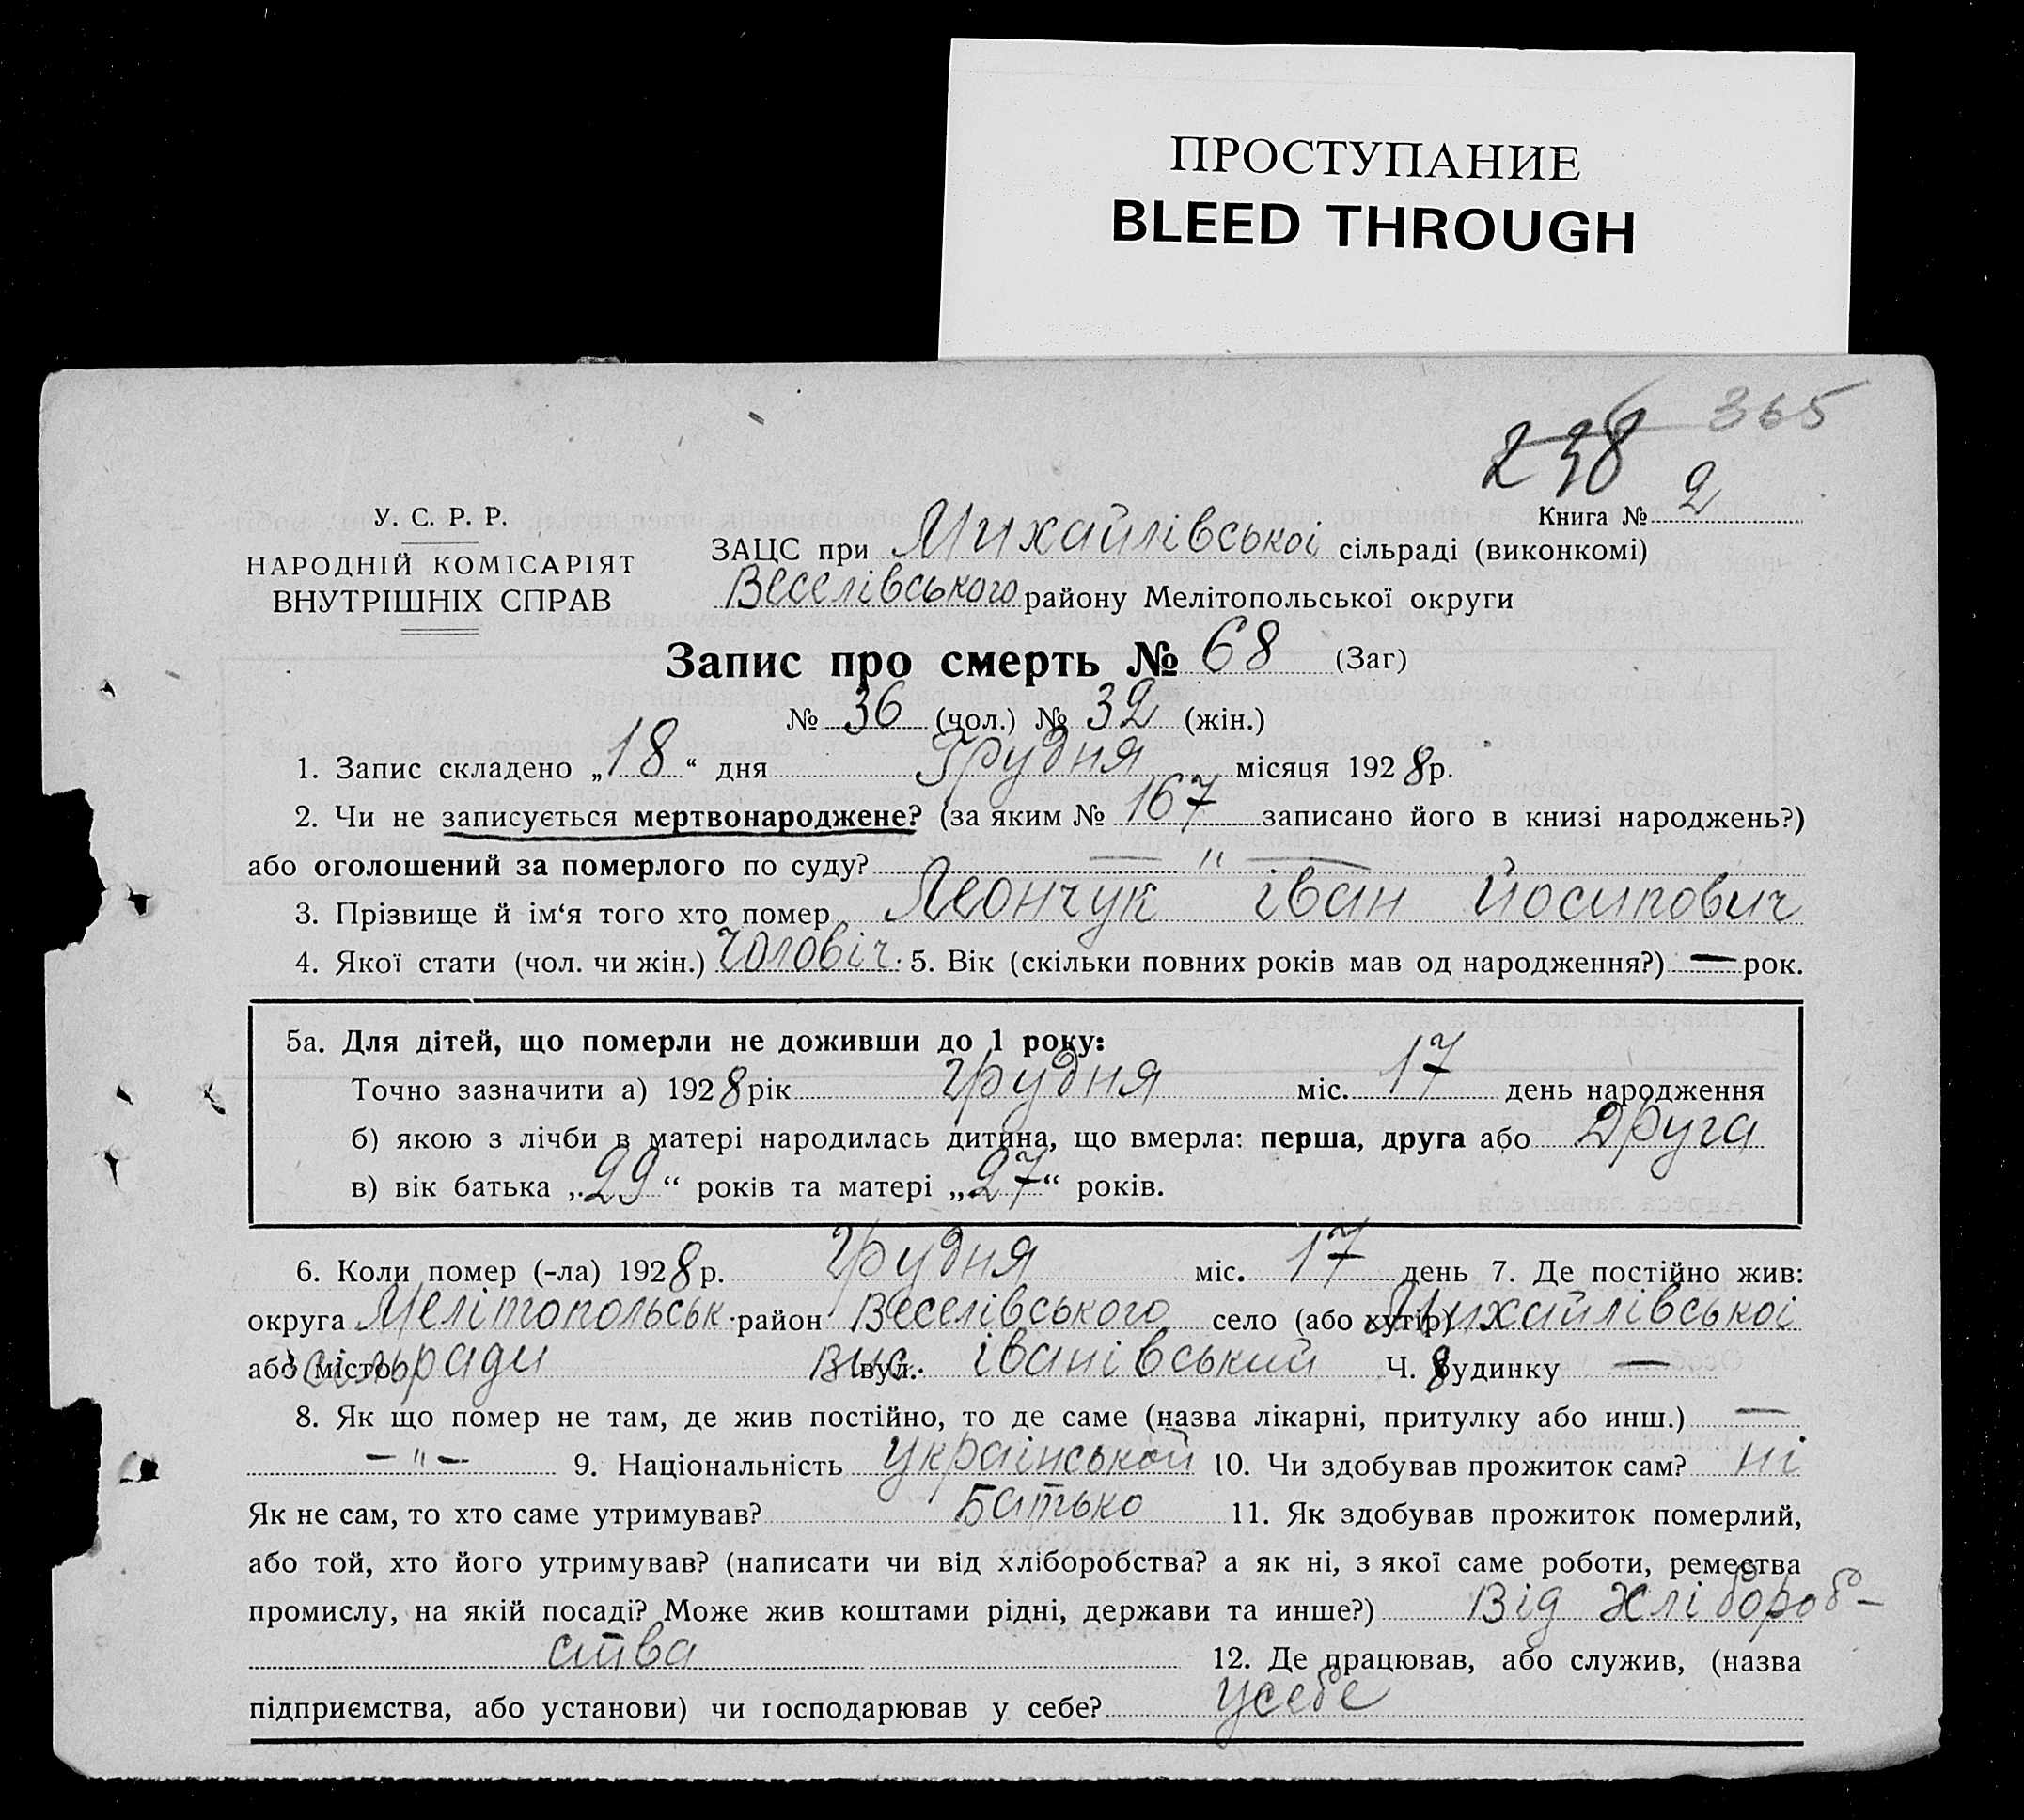 ПРОСТУПАНИЕ
BLEED THROUGH
365
238
Книга № 2
У. С. Р. Р.
НАРОДНІЙ КОМІСАРІЯТ
ВНУТРІШНІХ СПРАВ
ЗАЦС при Михайлівської сільраді (виконкомі)
Веселівського району Мелітопольської округи
Запис про смерть № 68 (Заг)
№ 36 (чол.) № 32 (жін.)
1. Запис складено „18“ дня Грудня місяця 1928р.
2. Чи не записується мертвонароджене? (за яким № 167 записано його в книзі народжень?)
або оголошений за померлого по суду? — " —
3. Прізвище й ім‘я того хто помер Леончук іван йосипович
4. Якої стати (чол. чи жін.) Чоловіч. 5. Вік (скільки повних років мав од народження?) — рок.
5а. Для дітей, що померли не доживши до 1 року:
Точно зазначити а) 1928 рік грудня міс. 17 день народження
б) якою з лічби в матері народилась дитина, що вмерла: перша, друга або Друга
в) вік батька „29“ років та матері „27“ років.
6. Коли помер (-ла) 1928 р. грудня міс. 17 день 7. Де постійно жив:
округа Мелітопольськ. район Веселівського село (або хутір) Михайлівської
або місто сільради вис. вул. іванівський Ч. будинку —
8. Як що помер не там, де жив постійно, то де саме (назва лікарні, притулку або инш.) —
— " — 9. Національність української 10. Чи здобував прожиток сам? ні
Як не сам, то хто саме утримував? Батько 11. Як здобував прожиток померлий,
або той, хто його утримував? (написати чи від хліборобства? а як ні, з якої саме роботи, ремества
промислу, на якій посаді? Може жив коштами рідні, держави та инше?) Від хлібороб-
ства 12. Де працював, або служив, (назва
підприємства, або установи) чи господарював у себе? усебе